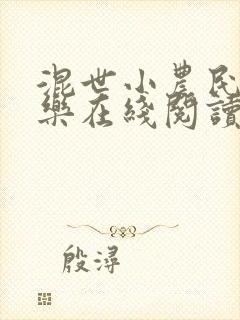 混世小農民
樂在綫閱讀
殷潯